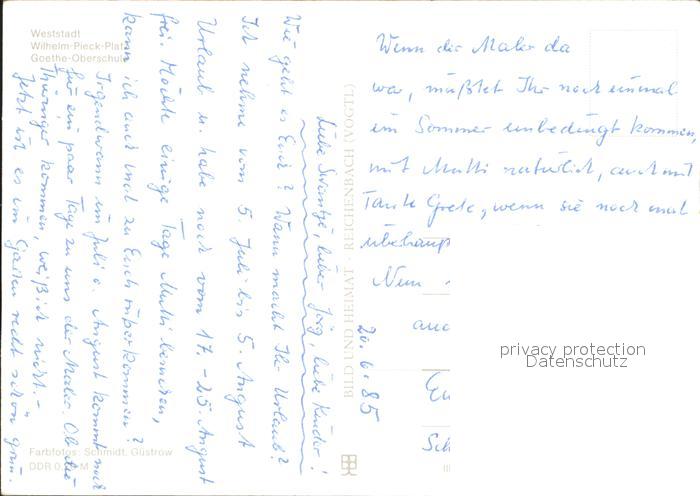 Weststadt
Wilhelm-Pieck-Platz
Goethe-Oberschule
20.6.85
Liebe Swantje, lieber Jörg, liebe Kinder!
Wie geht es Euch? Wann macht Ihr Urlaub?
Ich nehme vom 5. Juli bis 5. August
Urlaub u. habe noch vom 17.-25. August
frei. Möchte einige Tage Mutti besuchen,
kann ich auch mal zu Euch rüberkommen?
Irgendwann im Juli o. August kommt noch
für ein paar Tage zu uns der Maler. Ob die
Thüringer kommen, weiß ich nicht.-
Jetzt ist es im Garten recht schön grün.
Wenn der Maler da
war, müßtet Ihr noch einmal
im Sommer unbedingt kommen,
mit Mutti natürlich, auch mit
Tante Grete, wenn sie noch mal
überhaup
Nun
auc
Eu
Sch
BILD UND HEIMAT · REICHENBACH (VOGTL)
Farbfotos: Schmidt, Güstrow
DDR 0, M
privacy protection
Datenschutz